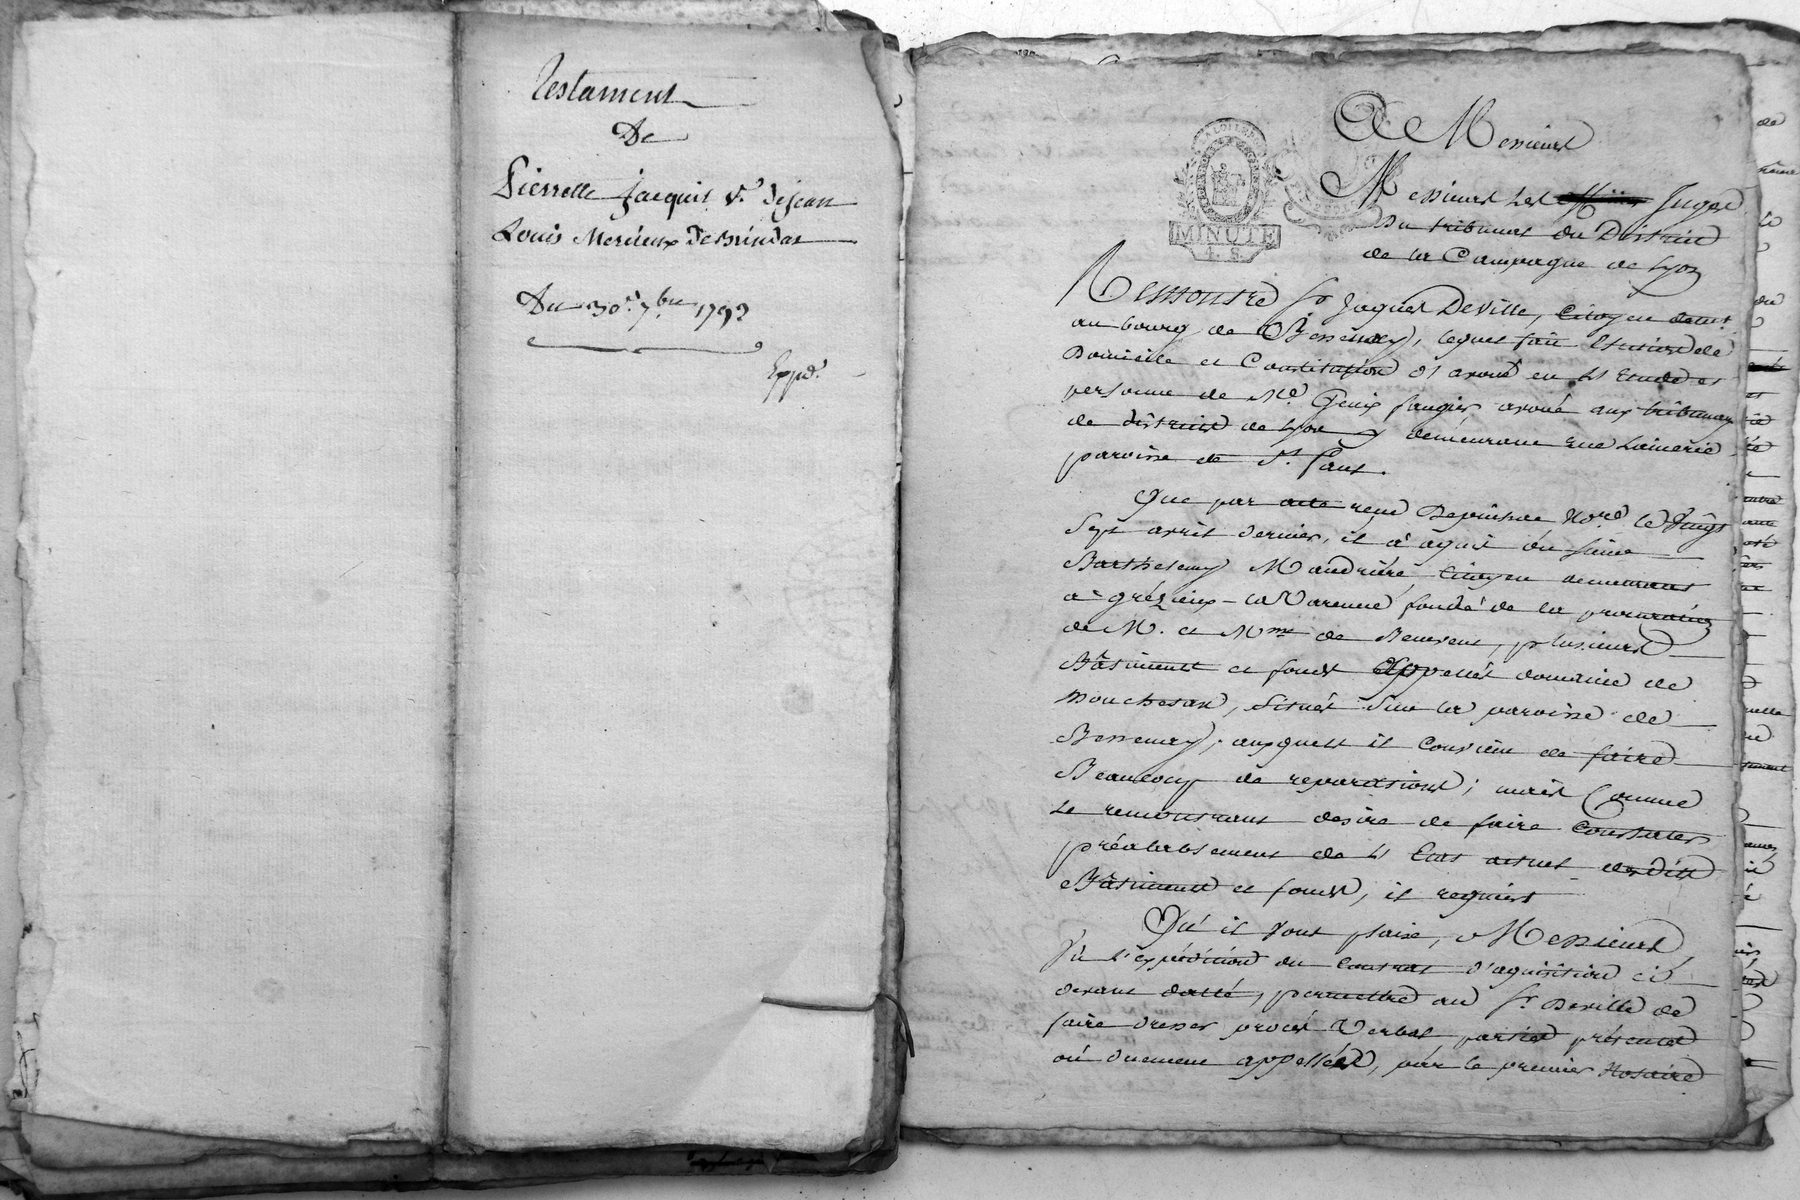 Testament
De
Pierrette Jacquit Ve. dejean
Louis Mercieux De Brindas
Du 30e. 7bre 1793
Expéd.
A Messieurs
Messieurs Les Juges
Du tribunal du District
de la Campagne de Lyon
MINUTE
4. S.
Remontre Sr Jaques Deville, Citoyen demt.
au bourg de Bessenay, lequel fait Election de
Domicile et Constitution d'avoué en l'Etude et
personne de Me. Genix faugier avoué aux tribunaux
de district de Lyon y demeurant rue Lainerie
paroisse de St. Paul.
Que par acte reçu Depuisne Nore. le Vingt
Sept avril dernier, il a aquit du sieur
Barthelemy Maudrière, Citoyen demeurant
à grézieux-la Varenne fondé de la procuration
de M. et Mme de Benevent, plusieurs
Bâtiments et fonds Appellés domaine de
Mouchesan, Situés Sur la paroisse de
Bessenay, auxquels il Convient de faire
Beaucoup de reparations; mais Comme
Le remontrant désire de faire Constater
préalablement de l'Etat actuel desdits
Bâtiments et fonds, il requiert
Qu'il Vous plaise, Messieurs,
Vû l'expédition du Contrat d'aquisition ci
devant datté, permettre au Sr. Deville de
faire dresser procès Verbal, parties présentes
ou duement appellées, par le premier Notaire